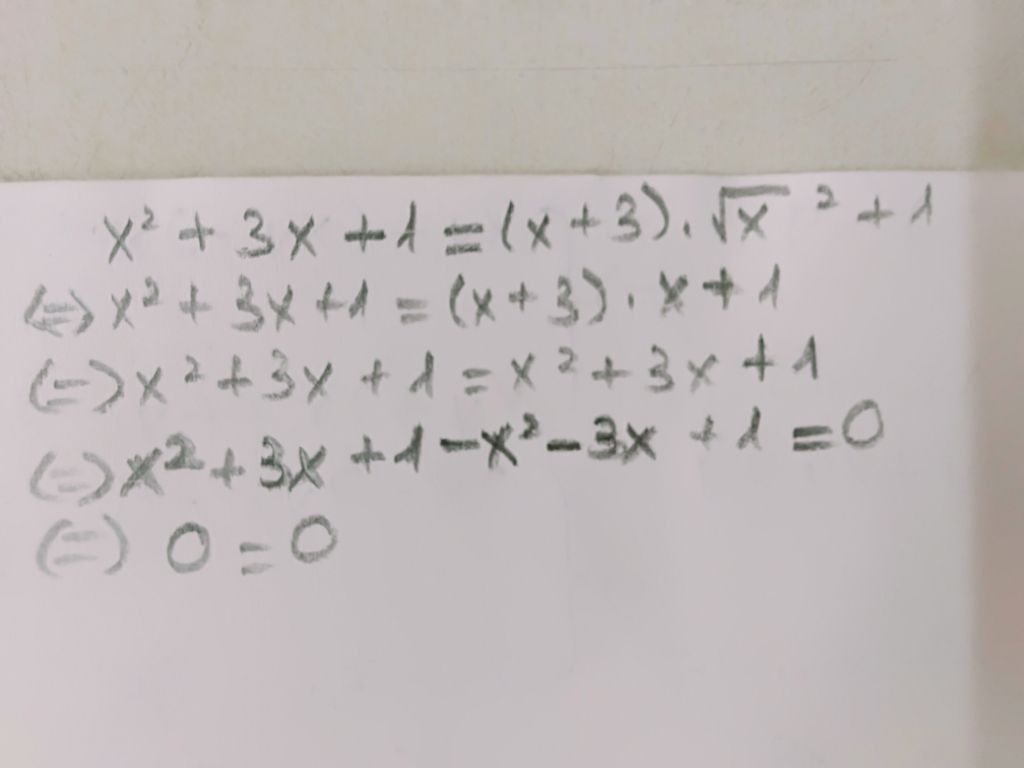 x² + 3x + 1 = (x + 3) . √x ² + 1
(=) x² + 3x + 1 = (x + 3) . x + 1
(=) x² + 3x + 1 = x² + 3x + 1
(=) x² + 3x + 1 - x² - 3x + 1 = 0
(=) 0 = 0